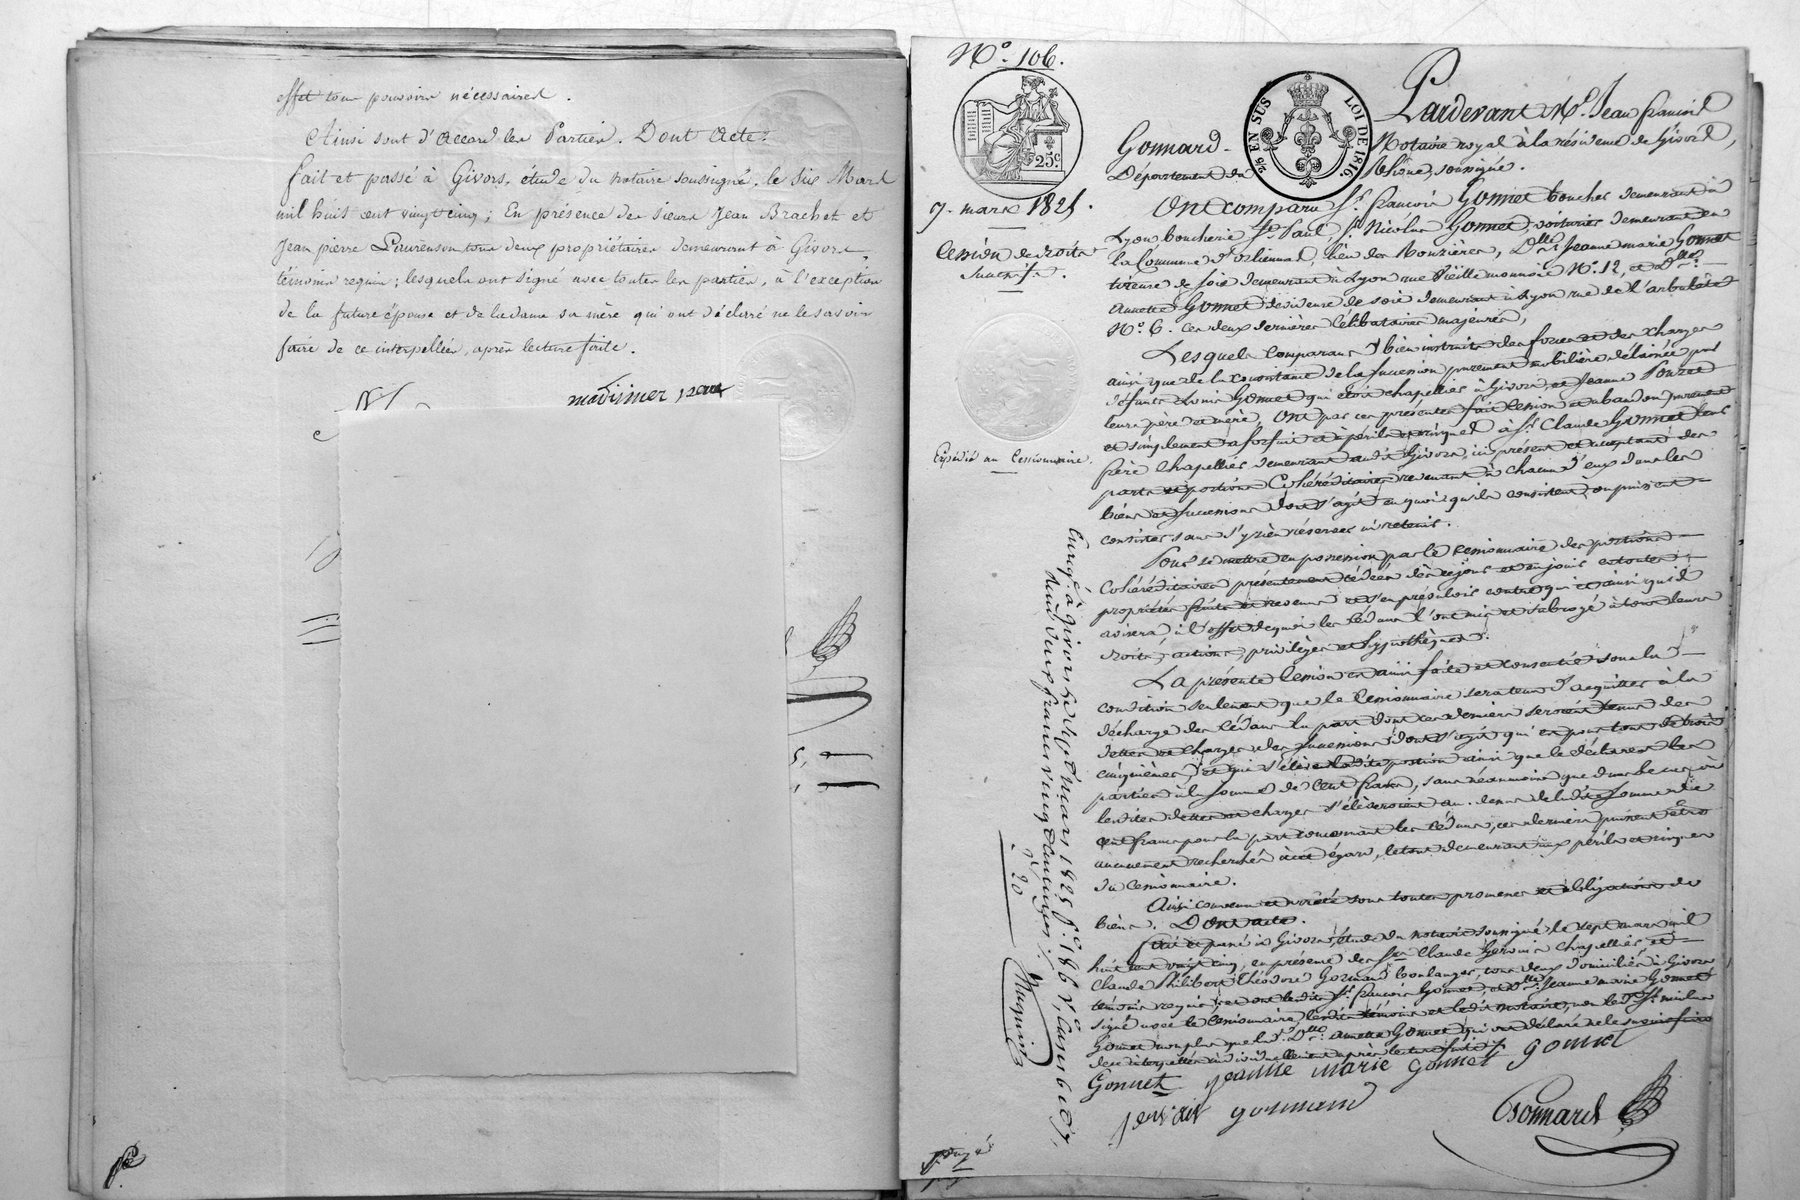 effet tous pouvoirs nécessaires.
Ainsi sont d'accord les Parties. Dont Acte.
fait et passé à Givors, étude du notaire soussigné, le six Mars
mil huit cent vingt cinq; En présence des sieurs Jean Brachet et
Jean pierre Laurenson tous deux propriétaires demeurant à Givors,
témoins requis; lesquels ont signé avec toutes les parties, à l'exception
de la future épouse et de la dame sa mère qui ont déclaré ne le savoir
faire de ce interpellées, après lecture faite.
N° 106.
25 c.
2/6 EN SUS LOI DE 1816.
7. mars 1825.
Cession de droits
successifs.
Expédié au Cessionnaire.
Pardevant Me. Jean François
Gonnard Notaire royal à la résidence de Givors,
Département du Rhône, soussigné.
Ont comparu Sr. françois Gonnet boucher demeurant à
Lyon, boucherie St. Paul, Sr. Nicolas Gonnet, voiturier demeurant en
la Commune d'Orliennas, lieu des Mouzières, Dlle. Jeanne marie Gonnet
tireuse de soie demeurant à Lyon rue Vieille monnaie N°. 12, et Dlle.
Annette Gonnet devideuse de soie demeurant à Lyon rue de l'arbalète
N°. 6. ces deux dernières célibataires majeures,
Lesquels comparans bien instruits des forces et des charges
ainsi que de la consistance de la succession purement mobilière délaissée par
défunts Louis Gonnet qui étoit chapellier à Givors, et Jeanne Pouzet
leurs père et mère, Ont par ces présentes fait Cession et abandon purement
et simplement à forfait et à périls et risques à Sr. Claude Gonnet leur
frère Chapellier demeurant audit Givors, ici présent et acceptant des
parts et portions Cohéréditaires revenant à chacun d'eux dans les
biens et successions dont s'agit en quoi qu'ils consistent ou puissent
consister sans s'y rien réserver ni retenir.
Pour se mettre en possession par le cessionnaire des portions
Cohéréditaires présentement cédées dès ce jour et en jouir en toute
propriété fruits et revenus et s'en prévaloir contre qui et ainsi qu'il
avisera, à l'effet de quoi les cédans l'ont mis et subrogé à tous leurs
droits, actions, privilèges et hypothèques.
La présente Cession est ainsi faite et consentie sous la
condition seulement que le Cessionnaire sera tenu d'acquitter à la
décharge des cédans la part dont ces derniers seroient tenus des
dettes et charges des successions dont s'agit
partie à la somme de Cent francs, sans néanmoins que dans le cas où
lesdites dettes et charges s'élèveroient au-dessus de ladite somme de
cent francs pour la part concernant les cédans, ces derniers puissent être
aucunement recherchés à cet égard, le tout demeurant aux périls et risques
du cessionnaire.
Ainsi convenu et arrêté sous toutes promesses et obligations de
biens. Dont acte.
Fait et passé à Givors, étude du notaire soussigné le sept mars mil
huit cent vingt cinq, en présence des Srs. Claude Gervais Chapellier et
Claude Philibert Théodore Gormand boulanger, tous deux domiciliés à Givors
témoins requis; et ont ledit Sr. françois Gonnet, et Dlle. Jeanne marie Gonnet
signé avec le Cessionnaire lesdits témoins et ledit notaire, non ledit Sr. nicolas
Gonnet non plus que la Dlle. annette Gonnet qui ont déclaré ne le savoir faire
de ce interpellés individuellement après lecture faite.
Gonnet jeanne marie gonnet gonnet
gervais gormand
Gonnard